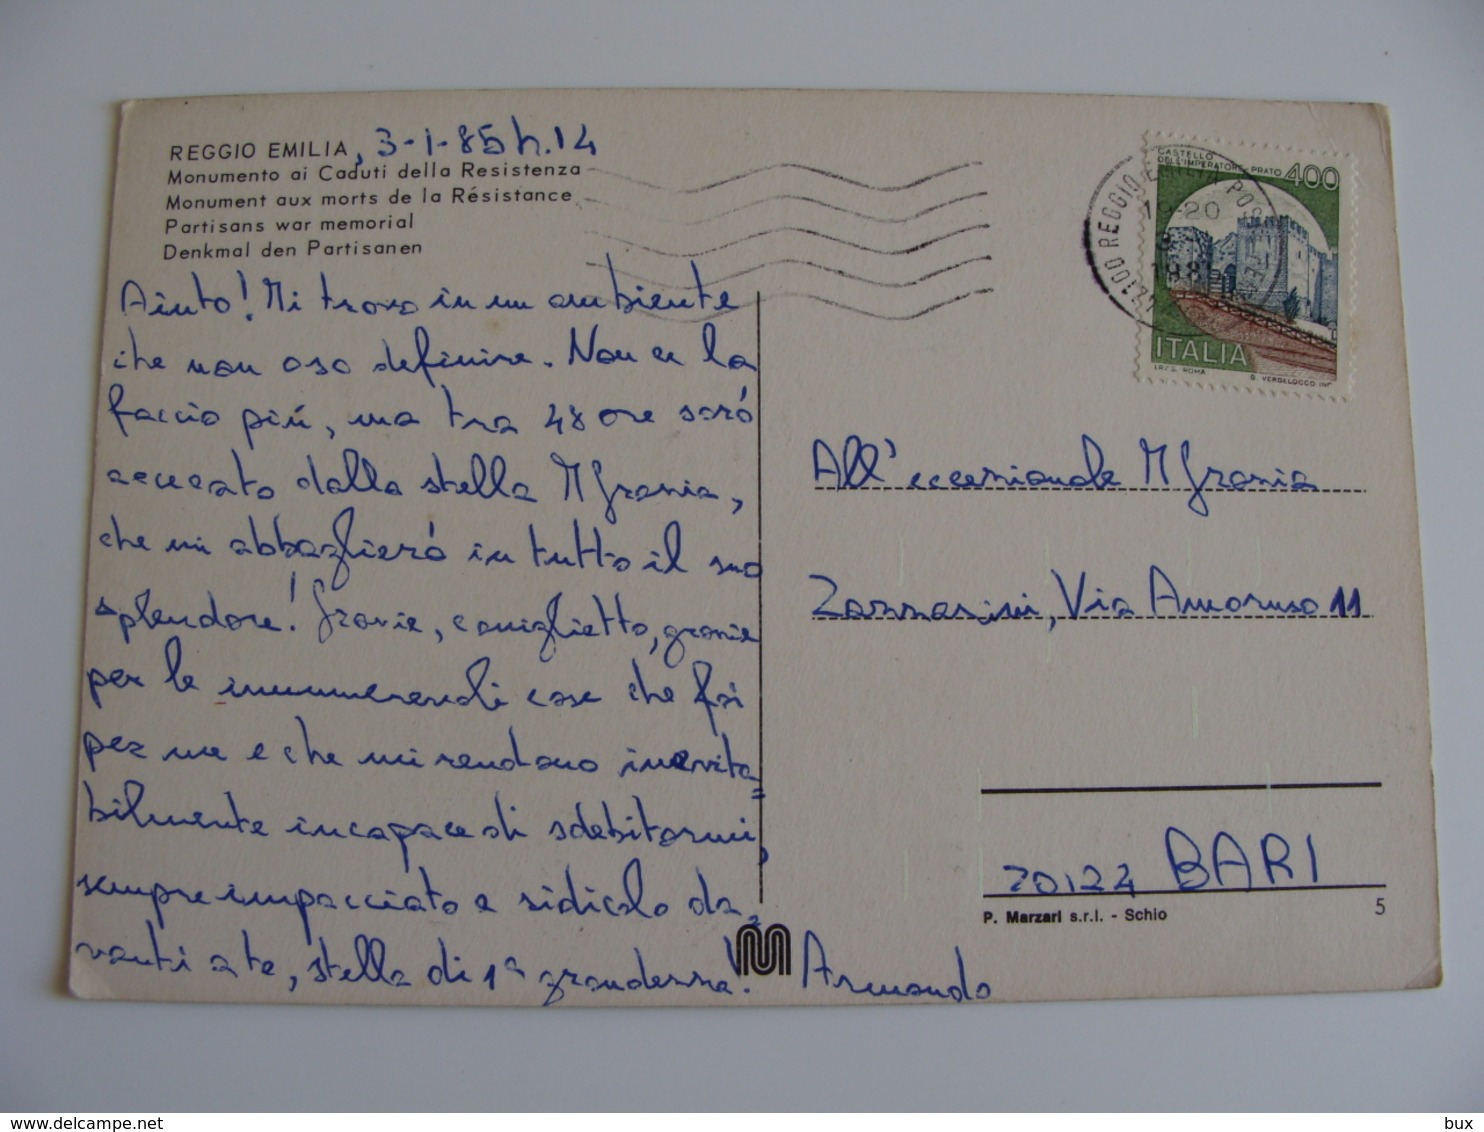 REGGIO EMILIA, 3-1-85 h. 14
Monumento ai Caduti della Resistenza
Monument aux morts de la Résistance
Partisans war memorial
Denkmal den Partisanen
Aiuto! Mi trovo in un ambiente
che non oso definire. Non ce la
faccio più, ma tra 48 ore sarò
accecato dalla stella M Grazia,
che mi abbaglierà in tutto il suo
splendore! Grazie, coniglietto, grazie
per le innumerevoli cose che fai
per me e che mi rendono inevita=
bilmente incapace di sdebitarmi,
sempre impacciato e ridicolo da=
vanti a te, stella di 1ª grandezza! Armando
CASTELLO
DELL'IMPERATORE - PRATO 400
ITALIA
I.P.Z.S. ROMA
REGGIO EMILIA
19-20
All'eccezionale M Grazia
Via Amoruso 11
70124 BARI
P. Marzari s.r.l. - Schio
5
www.delcampe.net
bux